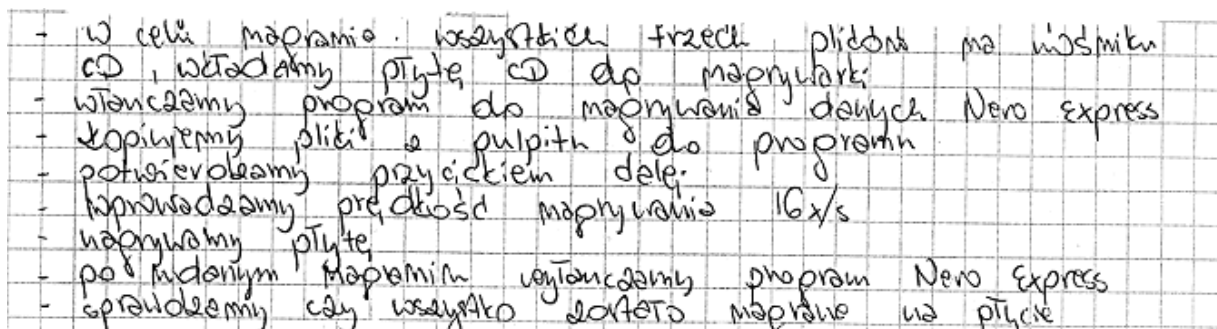 - W celu nagrania wszystkich trzech plików na nośniku
CD, wkładamy płytę CD do nagrywarki
- włanczamy program do nagrywania danych Nero Express
- kopiujemy pliki z pulpitu do programu
- potwierdzamy przycickiem dalej
- wprowadzamy prędkość nagrywania 16x/s
- nagrywamy płytę
- po udanym nagraniu wyłanczamy program Nero Express
- sprawdzamy czy wszystko zostało nagrane na płycie